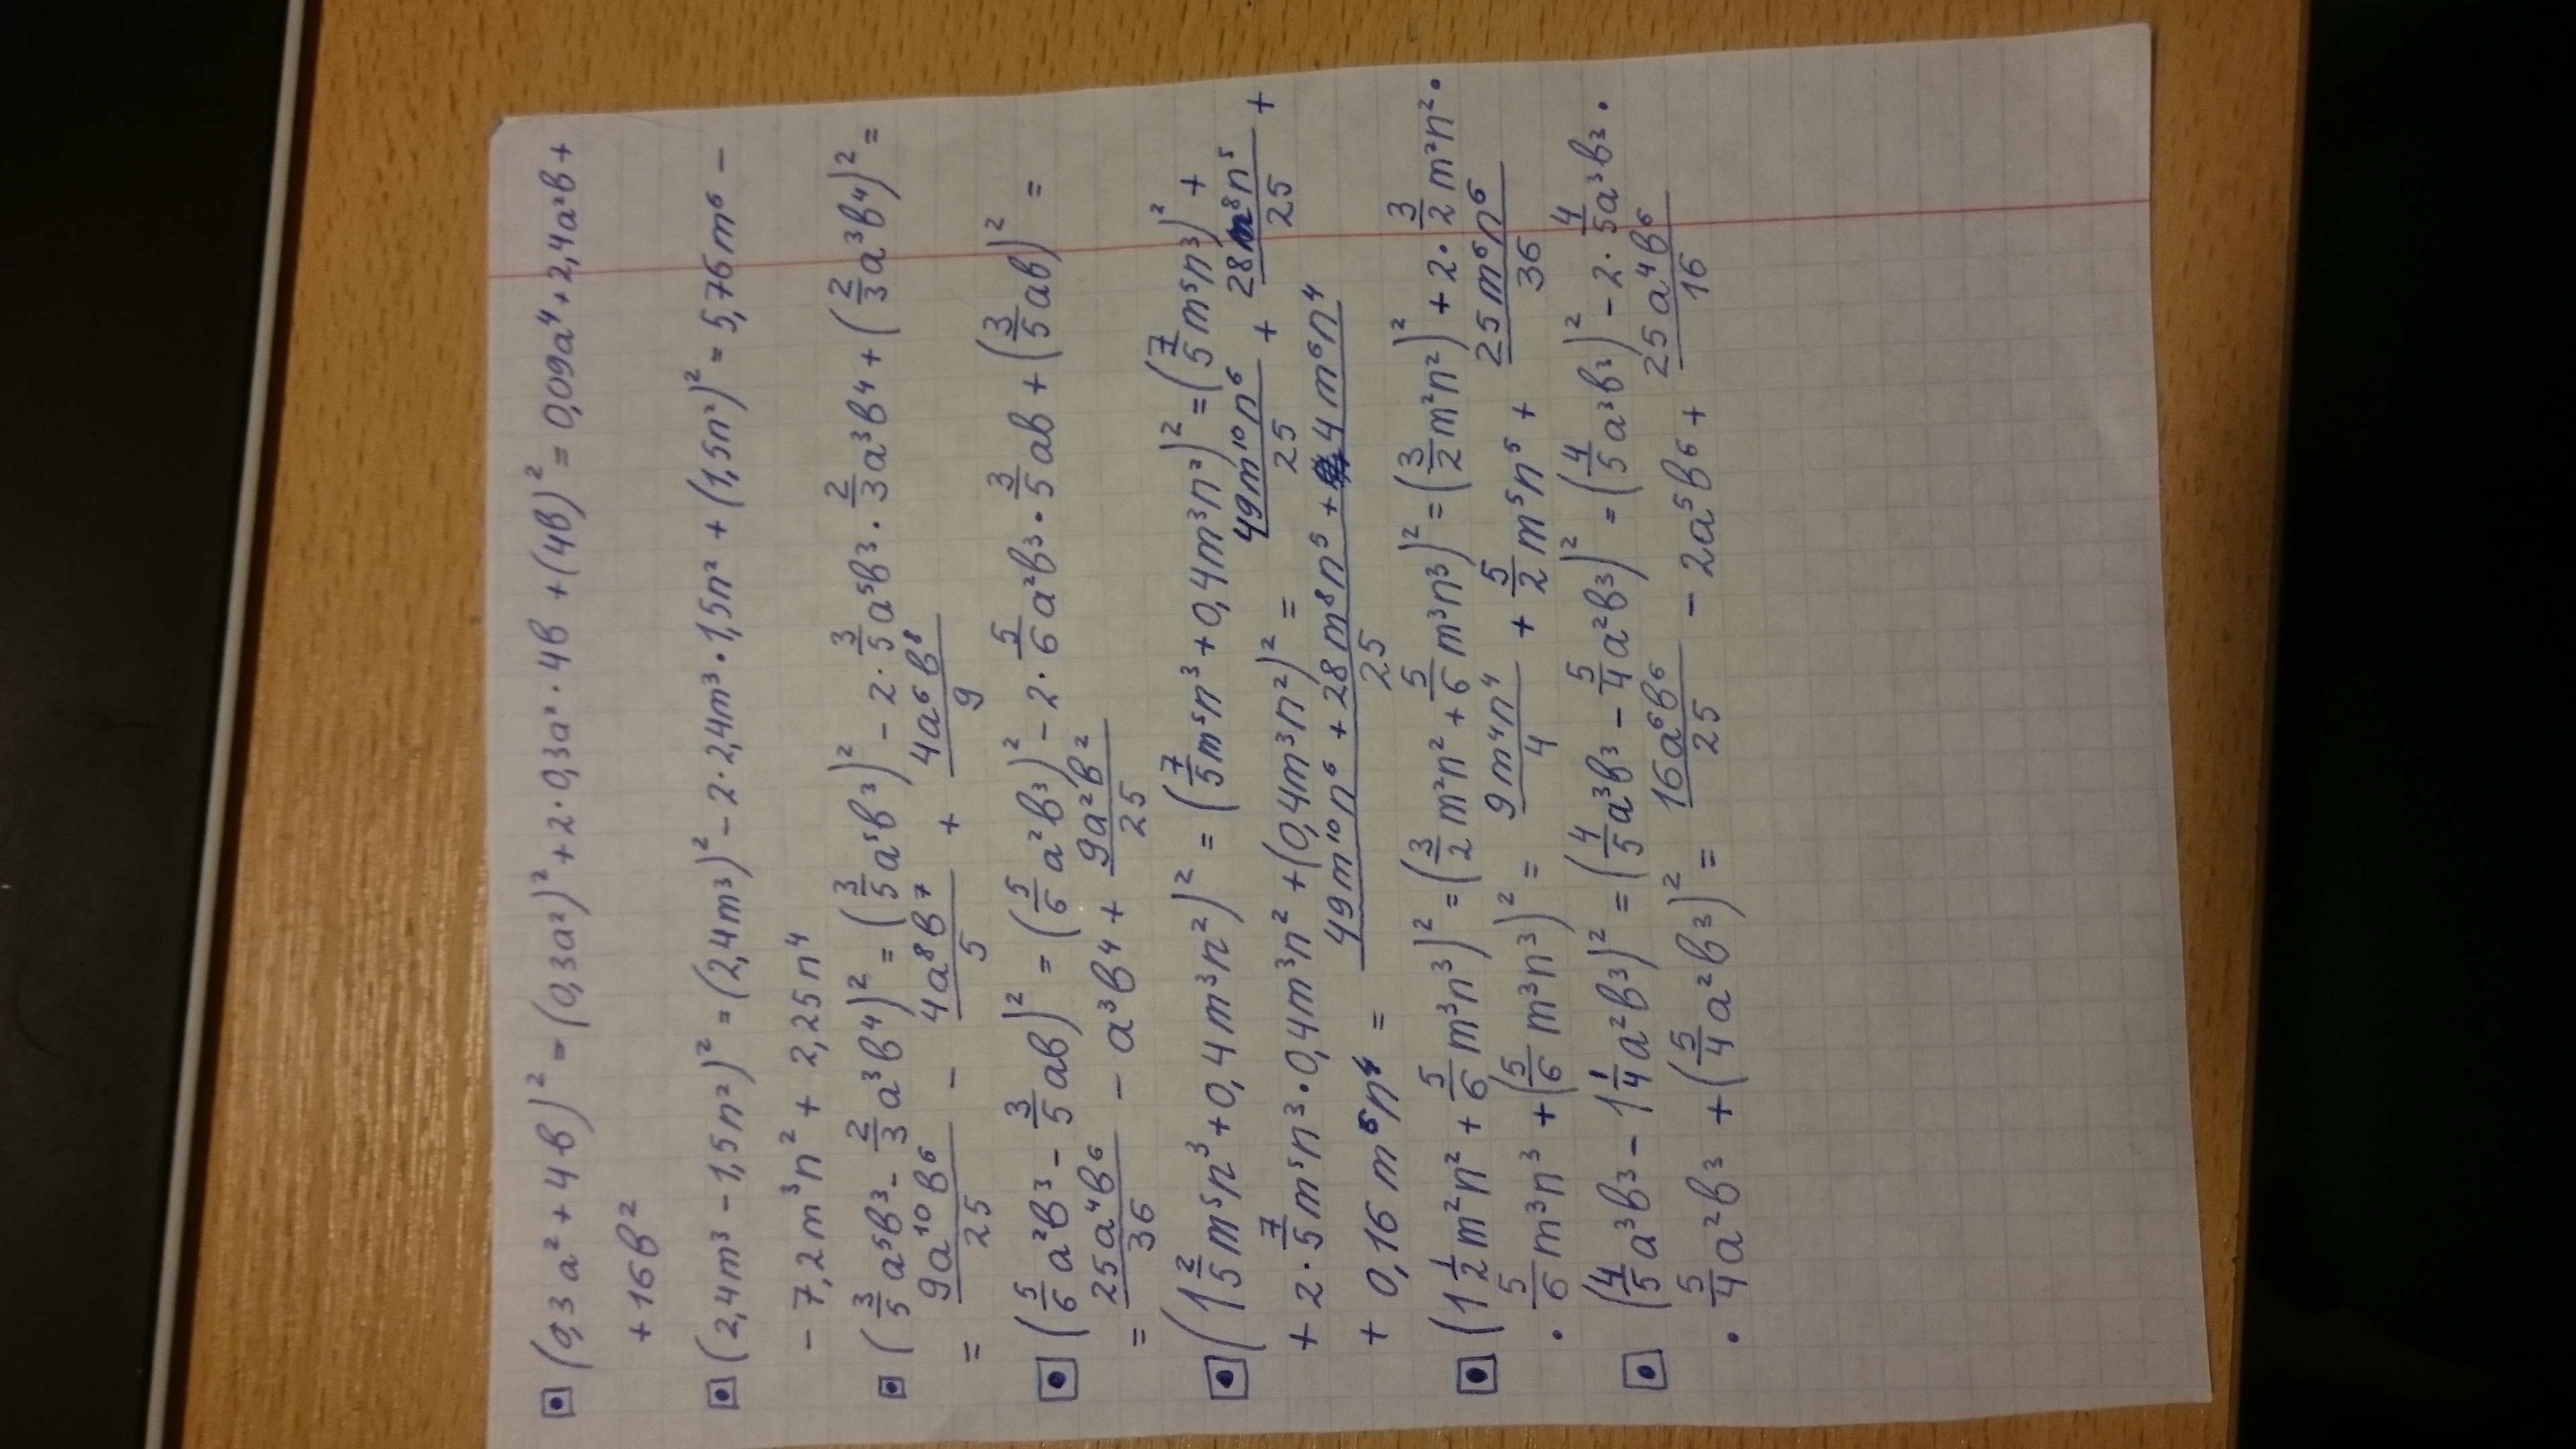 (0,3a² + 4b)² = (0,3a²)² + 2·0,3a²·4b + (4b)² = 0,09a⁴ + 2,4a²b +
+ 16b²
(2,4m³ − 1,5n²)² = (2,4m³)² − 2·2,4m³·1,5n² + (1,5n²)² = 5,76m⁶ −
− 7,2m³n² + 2,25n⁴
(3/5 a⁵b³ − 2/3 a³b⁴)² = (3/5 a⁵b³)² − 2·3/5 a⁵b³·2/3 a³b⁴ + (2/3 a³b⁴)² =
= 9a¹⁰b⁶/25 − 4a⁸b⁷/5 + 4a⁶b⁸/9
(5/6 a²b³ − 3/5 ab)² = (5/6 a²b³)² − 2·5/6 a²b³·3/5 ab + (3/5 ab)² =
= 25a⁴b⁶/36 − a³b⁴ + 9a²b²/25
(1 2/5 m⁵n³ + 0,4m³n²)² = (7/5 m⁵n³ + 0,4m³n²)² = (7/5 m⁵n³)² +
+ 2·7/5 m⁵n³·0,4m³n² + (0,4m³n²)² = 49m¹⁰n⁶/25 + 28m⁸n⁵/25 +
+ 0,16m⁶n⁴ = 49m¹⁰n⁶ + 28m⁸n⁵ + 4m⁶n⁴/25
(1 1/2 m²n² + 5/6 m³n³)² = (3/2 m²n² + 5/6 m³n³)² = (3/2 m²n²)² + 2·3/2 m²n²·
·5/6 m³n³ + (5/6 m³n³)² = 9m⁴n⁴/4 + 5/2 m⁵n⁵ + 25m⁶n⁶/36
(4/5 a³b³ − 1 1/4 a²b³)² = (4/5 a³b³ − 5/4 a²b³)² = (4/5 a³b³)² − 2·4/5 a³b³·
·5/4 a²b³ + (5/4 a²b³)² = 16a⁶b⁶/25 − 2a⁵b⁶ + 25a⁴b⁶/16